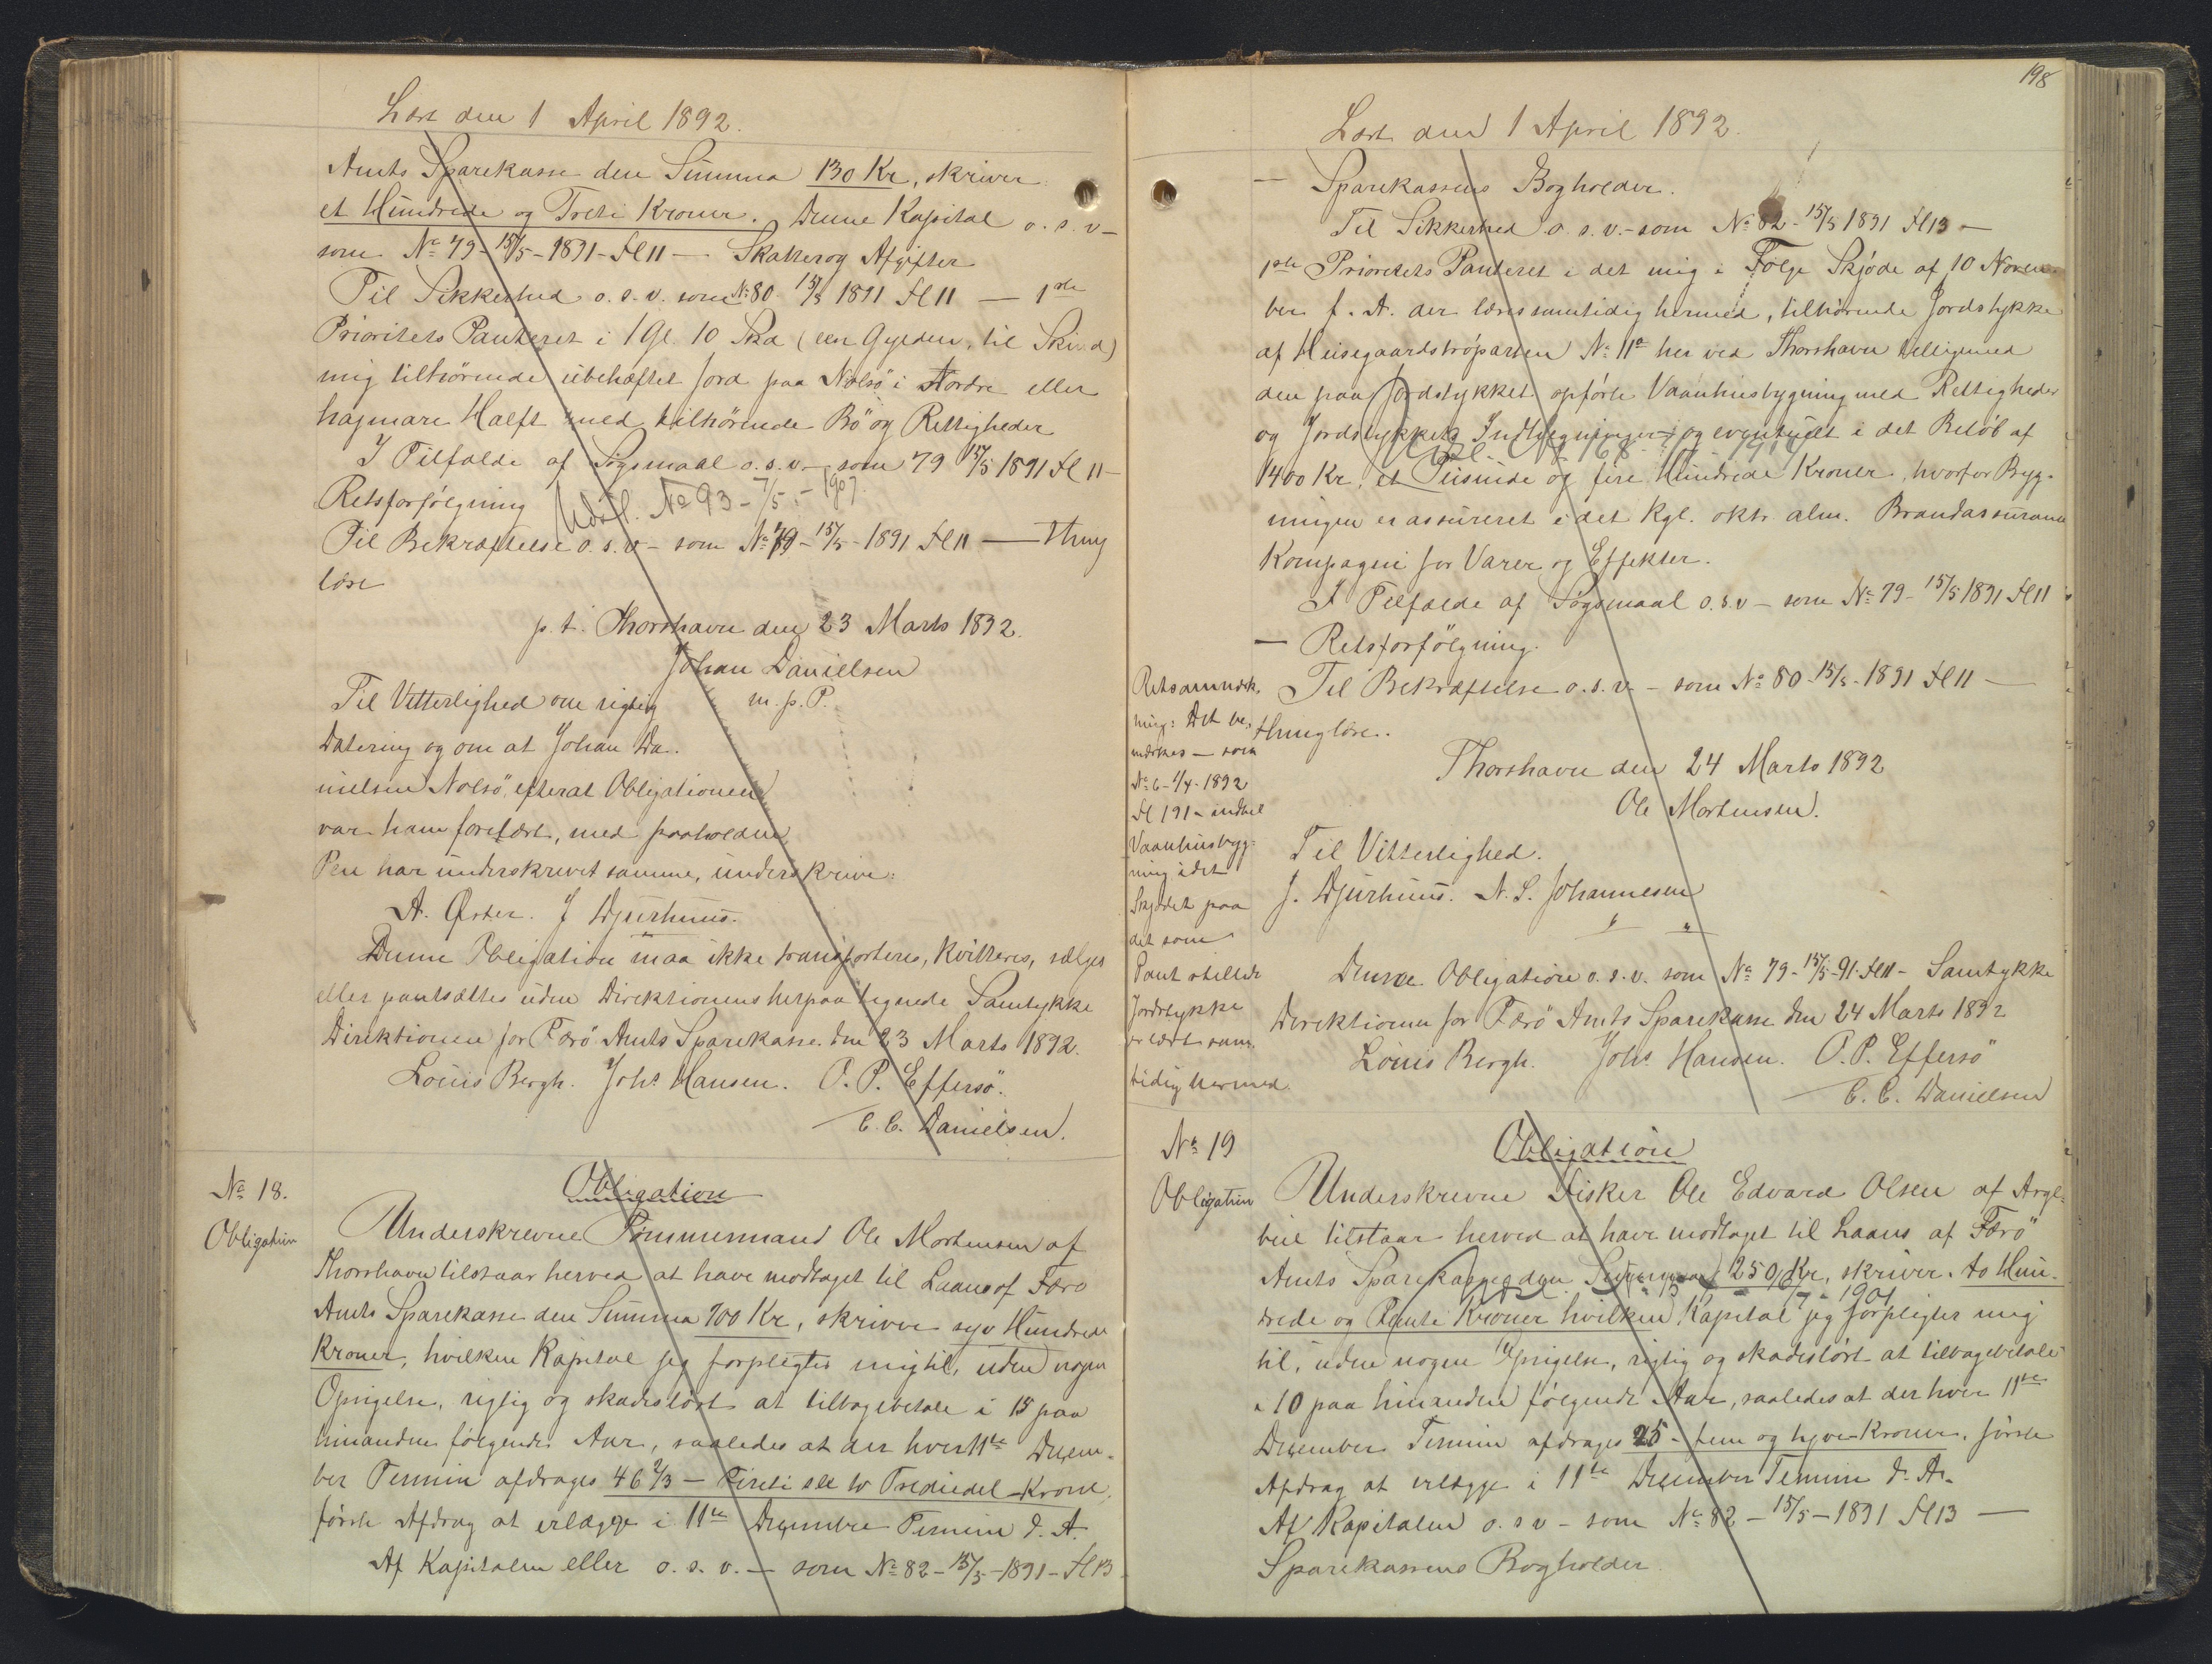 Læst den 1 April 1892.
Amts Sparekasse den Summa 130 Kr, skriver
et Hundrede og Treti Kroner. Denne Kapital o. s. v -
som No 79 - 15/5 - 1891 - Fl 11 — Skatter og Afgifter
Til Sikkerhed o. s. v. som No 80 15/5 1891 Fl 11 — 1ste
Prioritets Panteret i 1 Gl. 10 Skd (een Gylden, ti Skind)
mig tilhørende ubehæftet Jord paa Nolsö i Nordre eller
hagmare Halft med tilhörende Bö og Rettigheder
I Tilfælde af Sögsmaal o. s. v - som 79 15/5 1891 Fl 11 -
Retsforfölgning
Udsl. No 93 - 7/5 - 1907.
Til Bekræftelse o. s. v - som No 79 - 15/5 - 1891 Fl 11 — thing
læse
p. t. Thorshavn den 23 Marts 1892.
Johan Danielsen
m. p. P.
Til Vitterlighed om rigtig
Datering og om at Johan Da-
nielsen Nolsö, efterat Obligationen
var ham forelæst, med paaholden
Pen har underskrevet samme, underskrive:
A. Öster. J Djurhuus.
Denne Obligation maa ikke transporteres, kvitteres, sælges
eller pantsættes uden Direktionens herpaa tegnede Samtykke
Direktionen for Færö Amts Sparekasse den 23 Marts 1892.
Louis Bergh. Johs Hansen. O. P. Effersö.
C. C. Danielsen.
No 18.
Obligation
Obligation
Underskrevne Tömmermand Ole Mortensen af
Thorshavn tilstaar herved at have modtaget til Laans af Færö
Amts Sparekasse den Summa 700 Kr, skriver syv Hundrede
Kroner, hvilken Kapital jeg forpligter mig til, uden nogen
Opsigelse, rigtig og skadeslöst at tilbagebetale i 15 paa
hinanden fölgende Aar, saaledes at der hver 11te Decem-
ber Termin afdrages 46 2/3 — Fireti sex to Trediedel Krone,
förste Afdrag at erlægge i 11te Decembre Termin d. A.
Af Kapitalen eller o. s. v. — som No 82 - 15/5 - 1891 - Fl 13
198
Læst den 1 April 1892.
— Sparekassens Bogholder.
Til Sikkerhed o. s. v. - som No 82 - 15/5 1891 Fl 13 —
1ste Prioritets Panteret i det mig i Fölge Skjöde af 10 Novem-
ber f. A. der læses samtidig hermed, tilhörende Jordstykke
af Huisegaardströparten No 11a her ved Thorshavn tilligemed
den paa Jordstykket opförte Vaanhusbygning med Rettigheder
og Jordstykkets Indhegninger, og eventuelt i det Belöb af
1400 Kr, et Tusinde og fire Hundrede Kroner, hvorfor Byg-
ningen er assureret i det Kgl. oktr. alm. Brandassurance
Kompagni for Varer og Effekter.
I Tilfælde af Sögsmaal o. s. v - som No 79 - 15/5 1891 Fl 11
— Retsforfölgning.
Til Bekræftelse o. s. v. - som No 80 - 15/5 - 1891 Fl 11 —
thinglæse.
Thorshavn den 24 Marts 1892
Ole Mortensen.
Til Vitterlighed.
J. Djurhuus. N. S. Johannesen
Denne Obligation o. s. v. som No 79 - 15/5 - 91. Fl 11 - Samtykke
Direktionen for Færö Amts Sparekasse den 24 Marts 1892
Louis Bergh. Johs Hansen. O. P. Effersö
C. C. Danielsen
Retsanmærk-
ning: Det be-
mærkes - som
No 6 - 1/4 - 1892
Fl 191 - indtil
Vaanhusbyg-
ning idet
Skjödet paa
det som
Pant stillede
Jordstykke
er læst sam-
tidig hermed.
No 19
Obligation
Obligation
Underskrevne Fisker Ole Edvard Olsen af Arge-
bui tilstaar herved at have modtaget til Laans af Færö
Amts Sparekasse den Summa 250 Kr, skriver. to Hun-
drede og Femti Kroner hvilken Kapital jeg forpligter mig
til, uden nogen Opsigelse, rigtig og skadeslöst at tilbagebetale
i 10 paa hinanden fölgende Aar, saaledes at der hver 11te
December Termin afdrages 25 - fem og tyve Kroner, förste
Afdrag at erlægge i 11te December Termin d. A.
Af Kapitalen o. s v - som No 82 - 15/5 - 1891 Fl 13 —
Sparekassens Bogholder